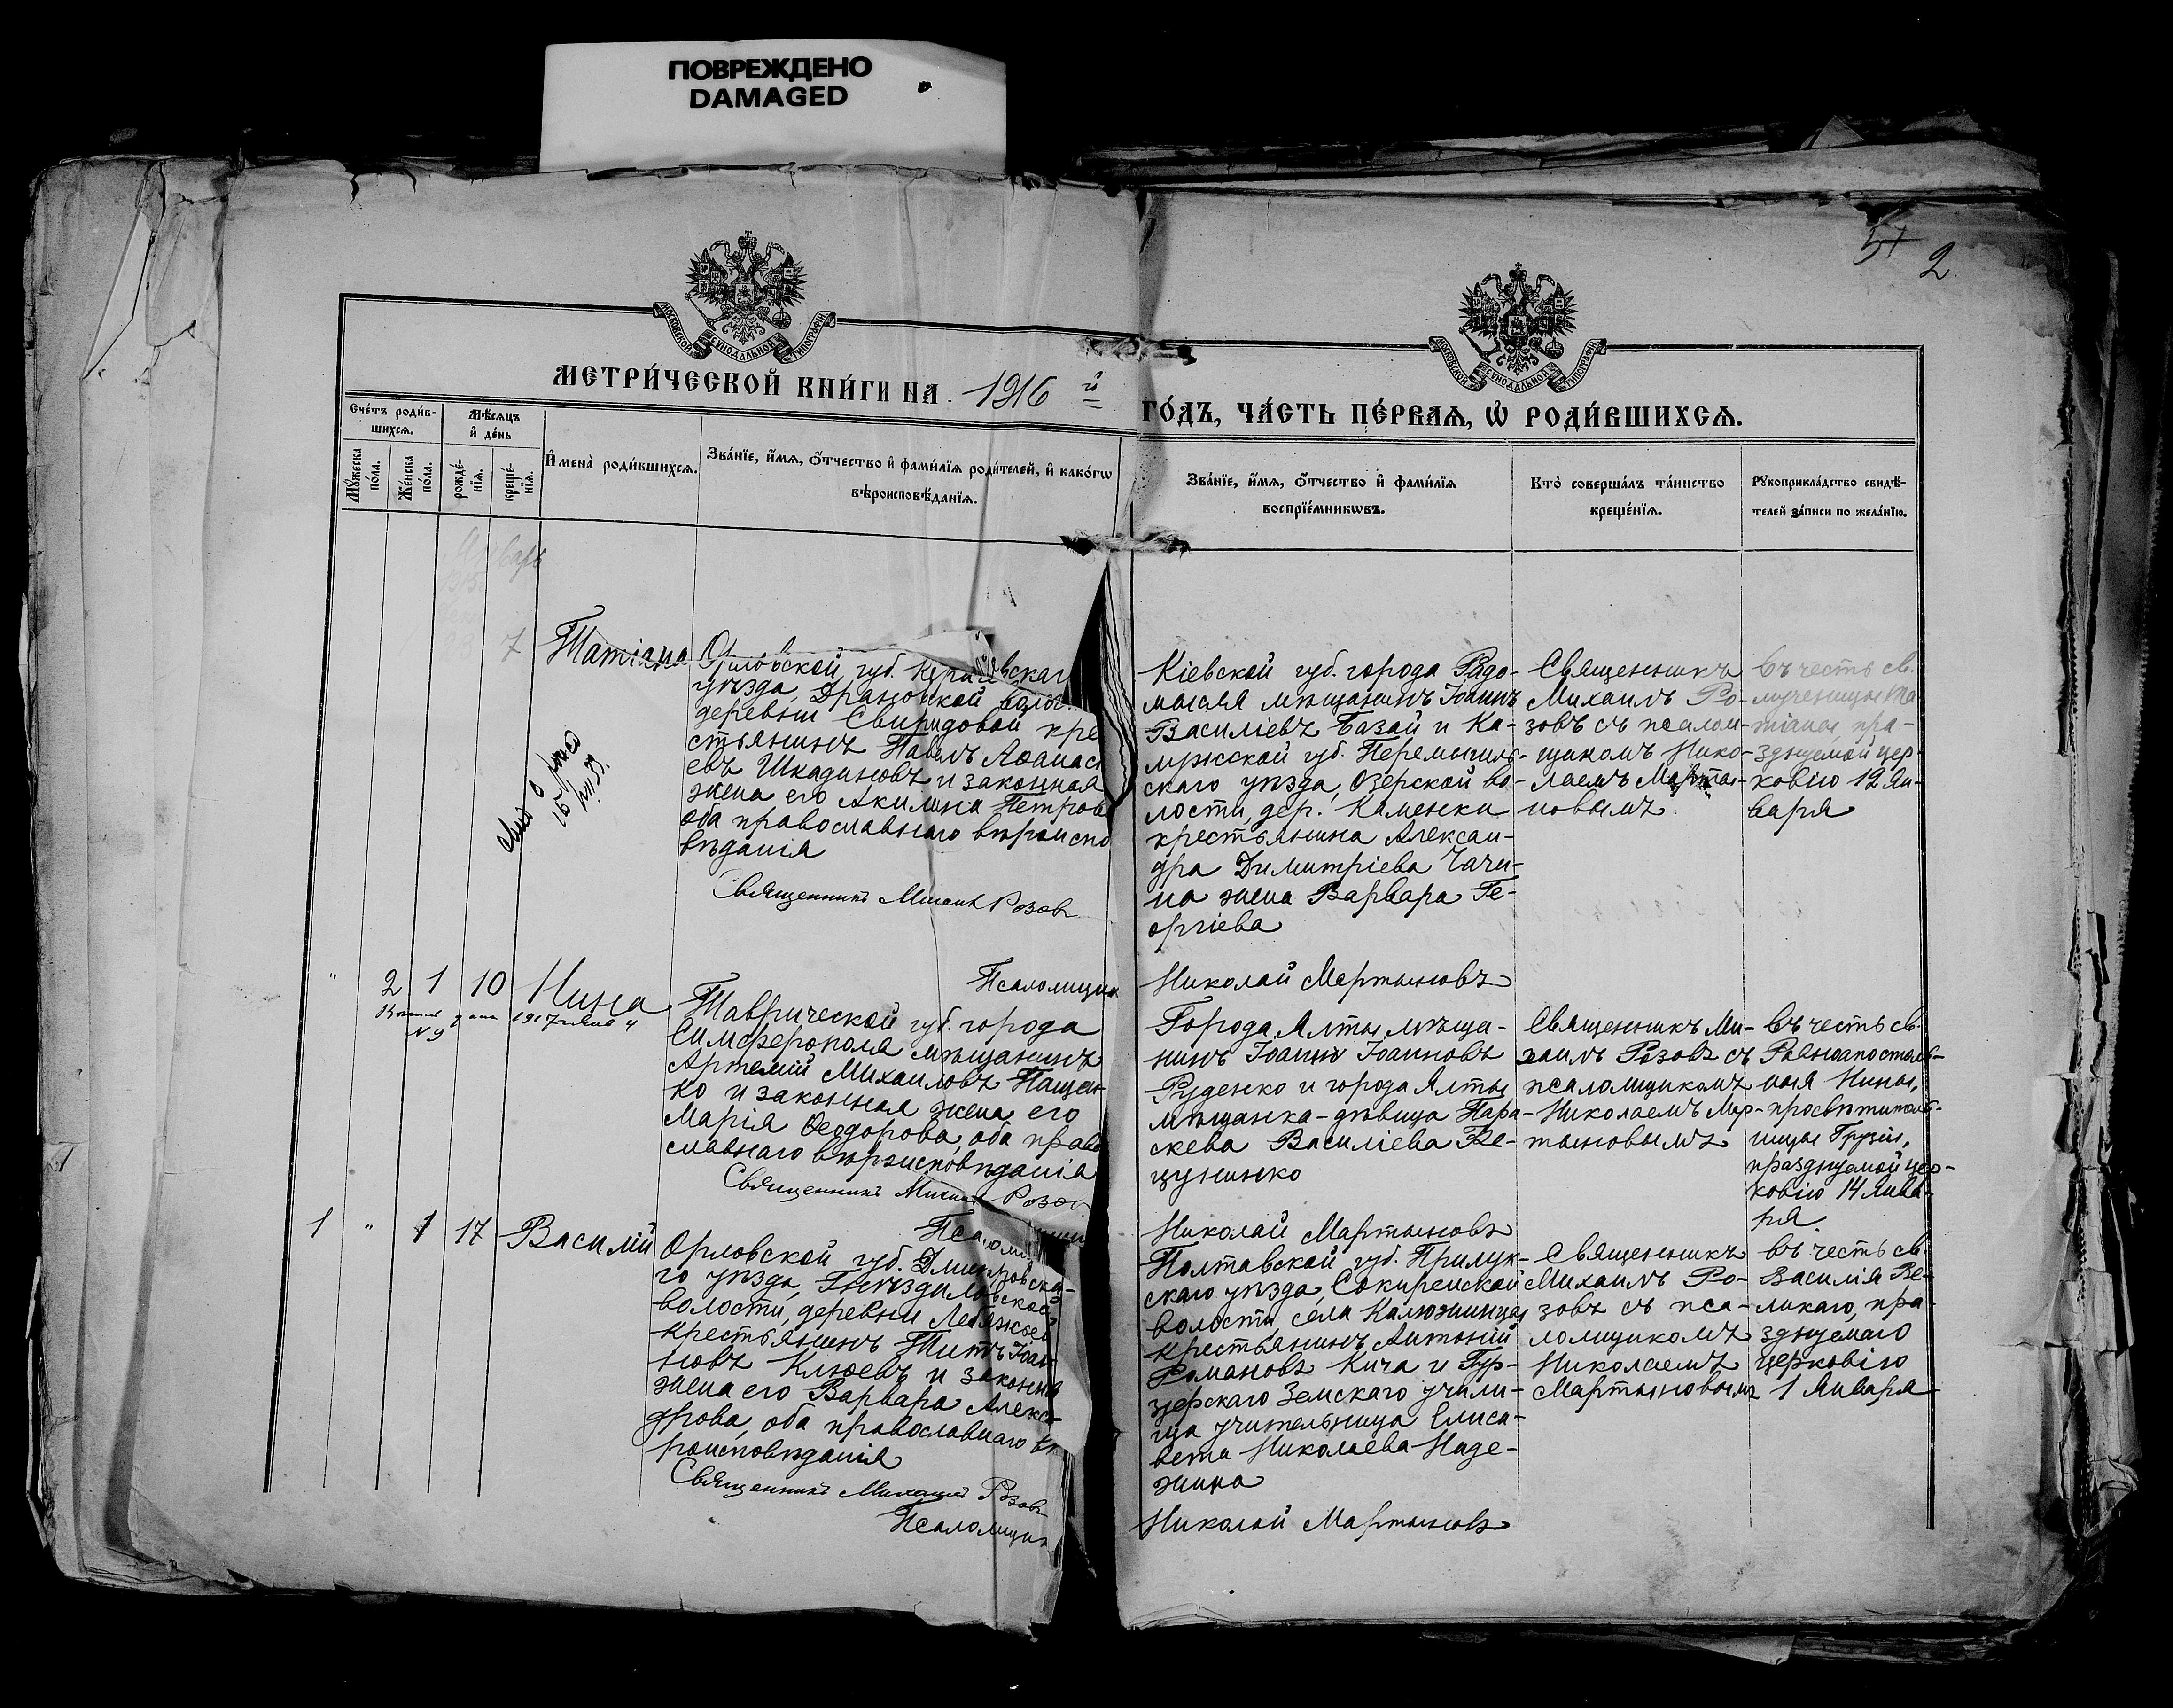 ПОВРЕЖДЕНО
DAMAGED
2
МОСКОВСКОЙ СѴНОДАЛЬНОЙ ТИПОГРАФІИ
МОСКОВСКОЙ СѴНОДАЛЬНОЙ ТИПОГРАФІИ
МЕТРИ́ЧЕСКОЙ КНИ́ГИ НА 1916 й
ГО́ДЪ, ЧА́СТЬ ПЕ́РВАѦ, Ѡ҆ РОДИ́ВШИХСѦ.
Сче́тъ роди́в-
шихсѧ.
Мѣ́сѧцъ
и҆ де́нь
Мꙋ́жеска
по́ла.
Же́нска
по́ла.
рожде́-
нїѧ.
креще́-
нїѧ.
И҆мена̀ роди́вшихсѧ.
Зва́нїе, и҆́мѧ, ѻ҆́тчество и҆ фами́лїѧ роди́телей, и҆ како́гѡ
вѣроисповѣ́данїѧ.
Зва́нїе, и҆́мѧ, ѻ҆́тчество и҆ фами́лїѧ
воспрїе́мникѡвъ.
Кто̀ соверша́лъ та́инство
креще́нїѧ.
Рꙋкоприкла́дство свидѣ́-
телей за́писи по жела́нїю.
Январь
7
Татіана
Орловской губ.
уѣзда, Драговской волост
деревни Свиридовой кре
стьянинъ Павелъ Аѳанась
евъ Шкадиновъ и законная
жена его Акилина Петрова
оба православнаго вѣроиспо
вѣданія
Священникъ Михаил Розов
Псаломщик
Кіевской губ. города Радо-
мысля мѣщанинъ Іоаннъ
Василіевъ Базай и Ка-
лужской губ. Перемышль-
скаго уѣзда, Озерской во-
лости, дер. Каменки
крестьянина Алексан-
дра Димитріева Чачи-
на жена Варвара Ге-
оргіева
Николай Мартыновъ
Священникъ
Михаилъ Ро-
зовъ съ псалом-
щикомъ Нико-
лаемъ Марты-
новымъ
въ честь св.
мученицы Та-
тіаны, пра-
зднуемой цер-
ковію 12 Ян-
варя
" 2 1 10 Нина
N 9
Таврической губ. города
Симферополя мѣщанинъ
Артемій Михаиловъ Пащен-
ко и законная жена его
Марія Ѳеодорова, оба право
славнаго вѣроисповѣданія
Священникъ Михаил Розов
Псаломщик
Города Ялты мѣща-
нинъ Іоаннъ Іоанновъ
Руденко и города Ялты
мѣщанка-дѣвица Пара-
скева Василіева Ве-
цуненко
Николай Мартыновъ
Священникъ Ми-
хаилъ Розовъ съ
псаломщикомъ
Николаемъ Мар-
тыновымъ
въ честь св.
Равноапостоль-
ныя Нины,
просвѣтитель-
ницы Грузіи,
празднуемой цер-
ковію 14 Янва-
ря.
1 " 1 17 Василій
Орловской губ. Дмитровска-
го уѣзда, Гнѣздиловской
волости, деревни Лебяжьей
крестьянинъ Титъ Іоан-
новъ Клюевъ и законная
жена его Варвара Алексан
дрова, оба православнаго вѣ
роисповѣданія
Священникъ Михаилъ Розовъ
Псаломщик
Полтавской губ. Прилук-
скаго уѣзда, Сокиренской
волости села Калюжинцы
крестьянинъ Антоній
Романовъ Кича и Гур-
зуфскаго Земскаго учили-
ща учительница Елиса-
вета Николаева Наде-
жина
Николай Мартыновъ
Священникъ
Михаилъ Ро-
зовъ съ пса-
ломщикомъ
Николаемъ
Мартыновымъ
въ честь св.
Василія Ве-
ликаго, пра-
зднуемаго
церковію
1 Января